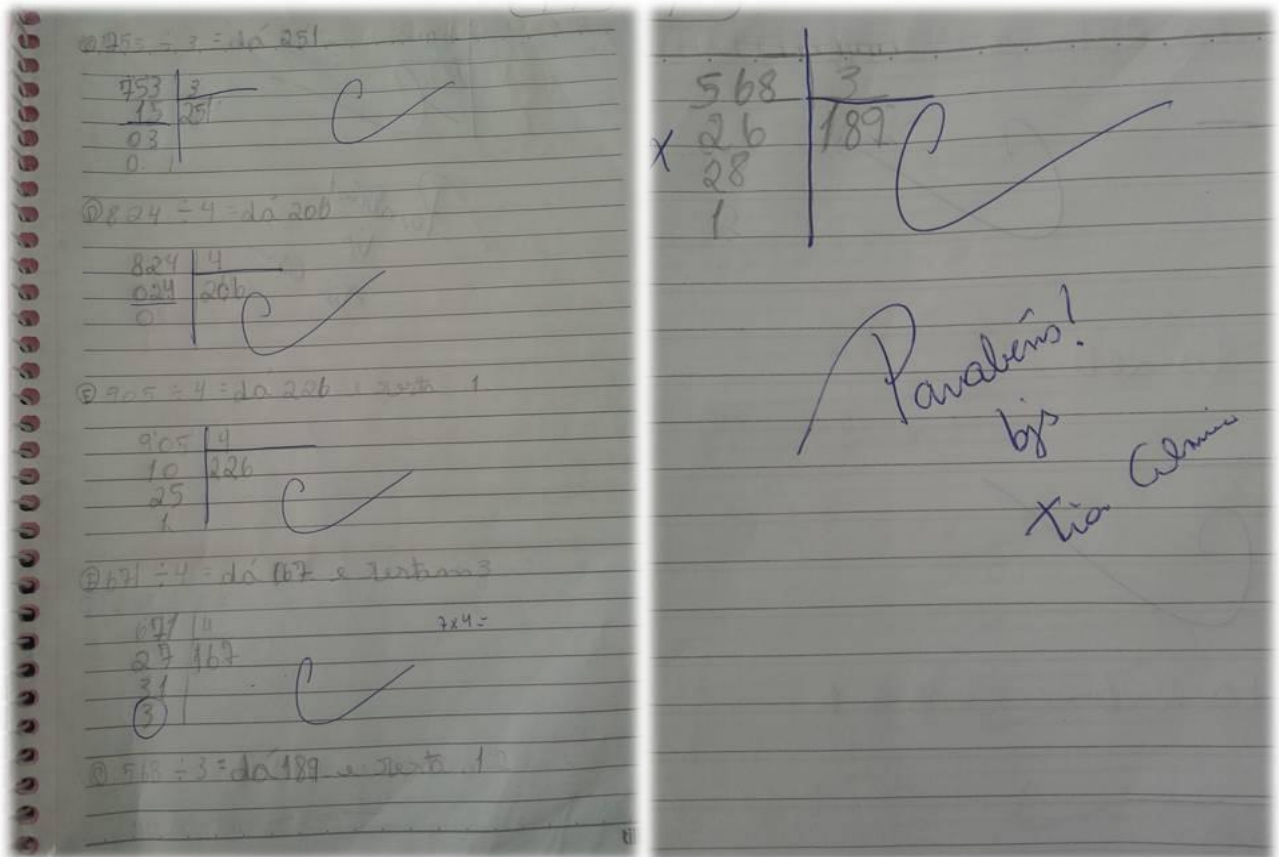 753 ÷ 3 = dá 251
753 3
15 251
03
0
D 824 ÷ 4 = dá 206
824 4
024 206
0
E 905 ÷ 4 = dá 226 e resta 1
905 4
10 226
25
1
671 ÷ 4 = dá 167 e restam 3
671 4 7x4=
27 167
31
3
568 ÷ 3 = dá 189 e resta 1
568 3
X 26 189
28
1
Parabéns!
bjs
tia